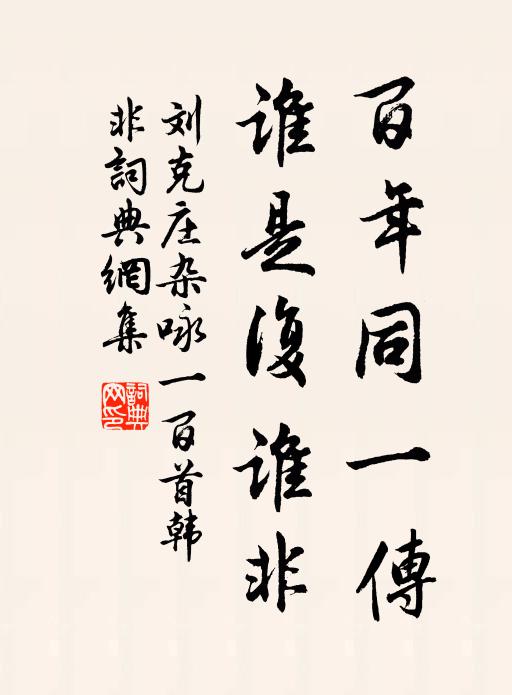 百年同一傳
谁是復谁非
刘克庄杂咏一百首韩
非詞典網集
詞典网印